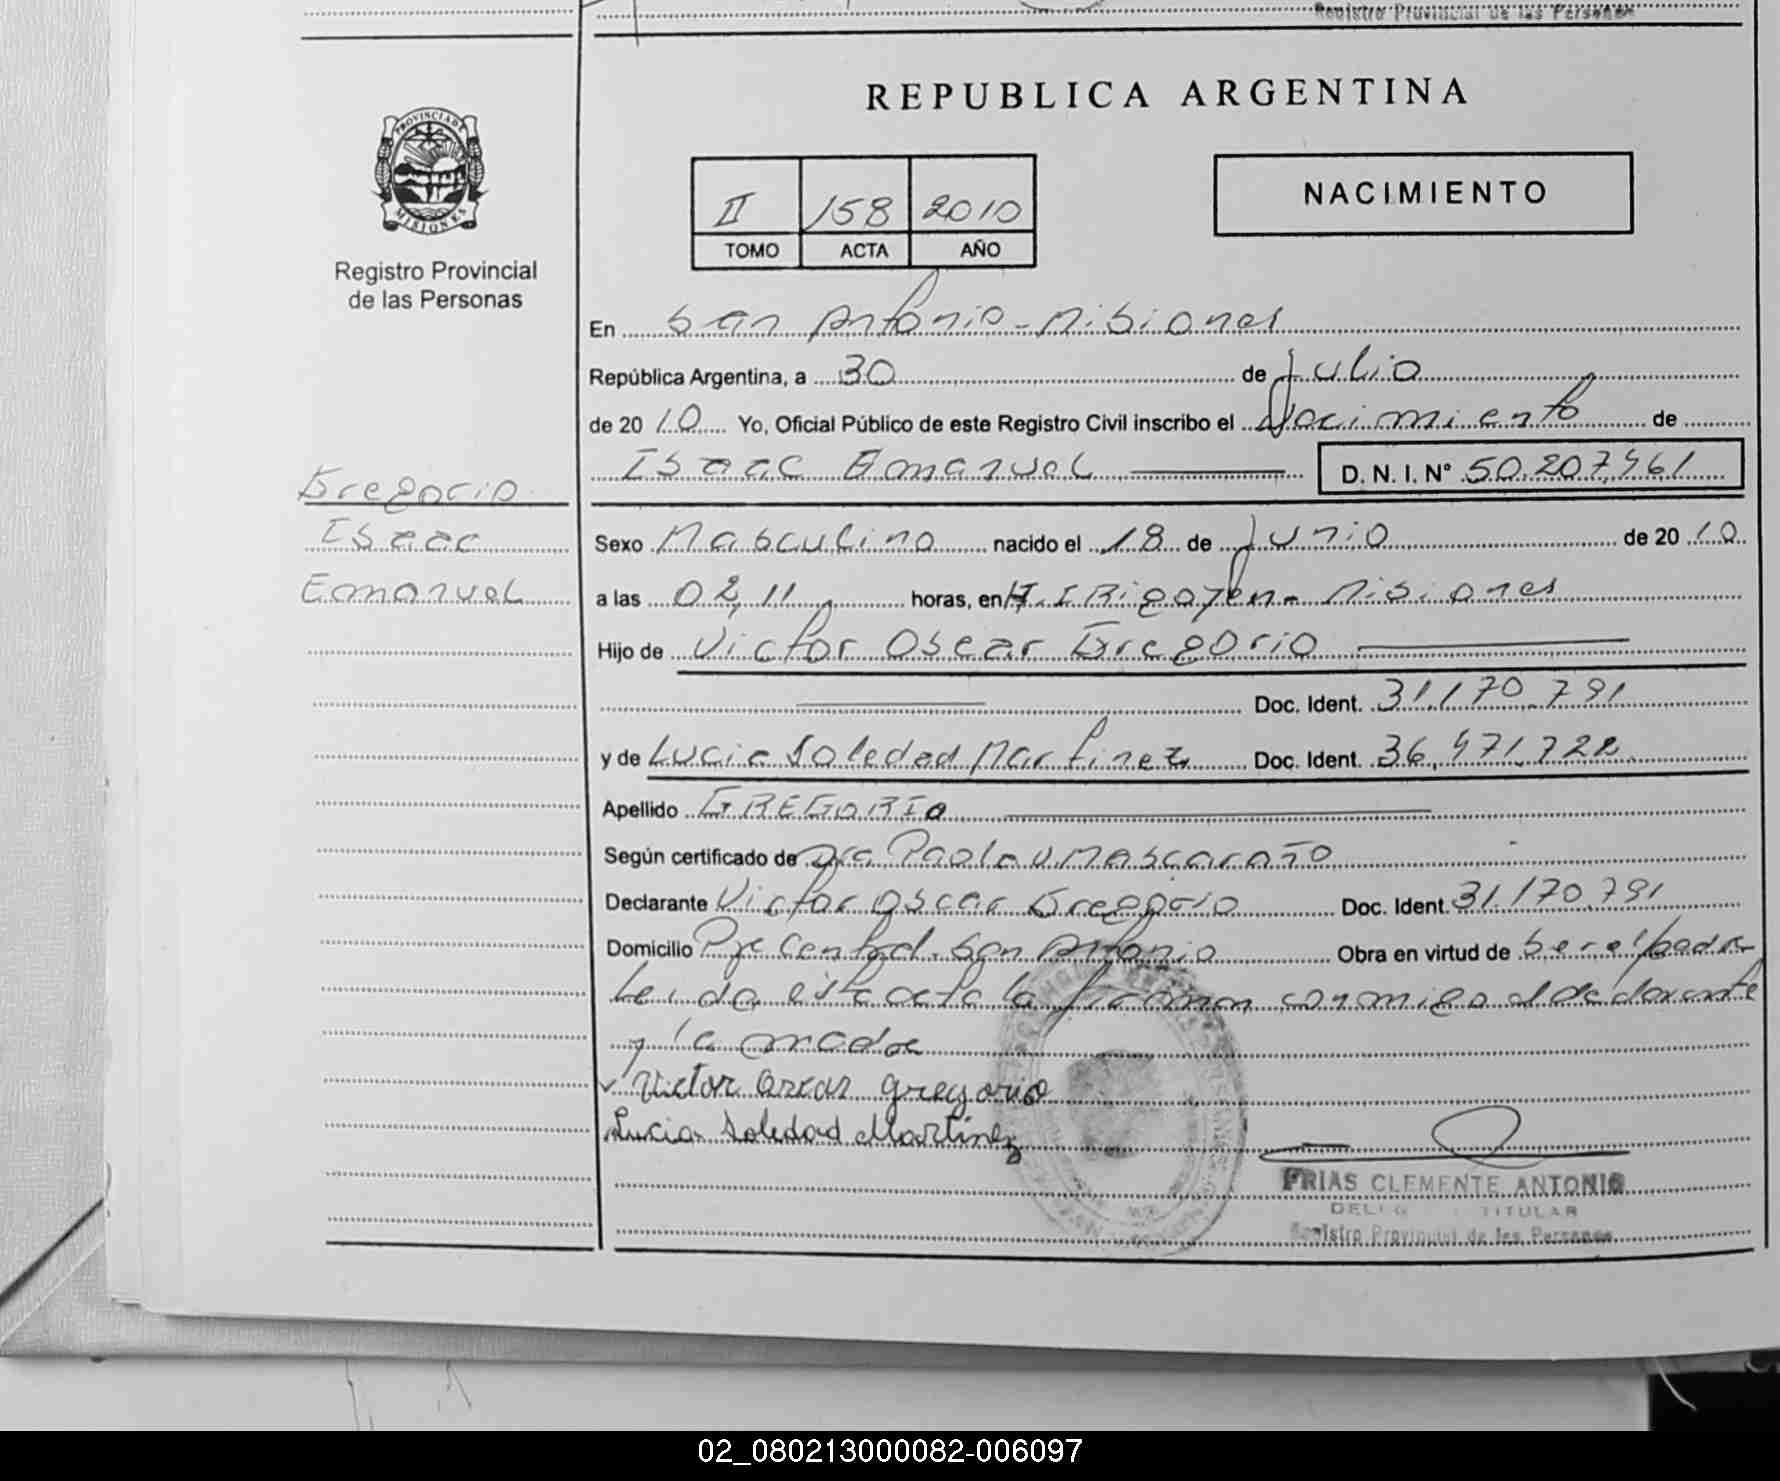 Registro Provincial de las Personas
REPUBLICA ARGENTINA
PROVINCIA DE
MISIONES
Registro Provincial
de las Personas
II 158 2010
TOMO ACTA AÑO
NACIMIENTO
En San Antonio - Misiones
República Argentina, a 30 de Julio
de 2010 Yo, Oficial Público de este Registro Civil inscribo el Nacimiento de
Isaac Emanuel D. N. I. Nº 50.207.461
Gregorio
Isaac
Emanuel
Sexo Masculino nacido el 18 de Junio de 2010
a las 02,11 horas, en H. IRigoyen - Misiones
Hijo de Victor Oscar Gregorio
Doc. Ident. 31.170.791
y de Lucia Soledad Martinez Doc. Ident. 36.471.722
Apellido GREGORIO
Según certificado de Dra Paola V. Mascaraño
Declarante Victor Oscar Gregorio Doc. Ident. 31.170.791
Domicilio Pje Central - San Antonio Obra en virtud de ser el padre
Leida esta acta la firman conmigo el declarante
y la madre
Victor Oscar Gregorio
Lucia Soledad Martinez
FRIAS CLEMENTE ANTONIO
TITULAR
Registro Provincial de las Personas
02_080213000082-006097